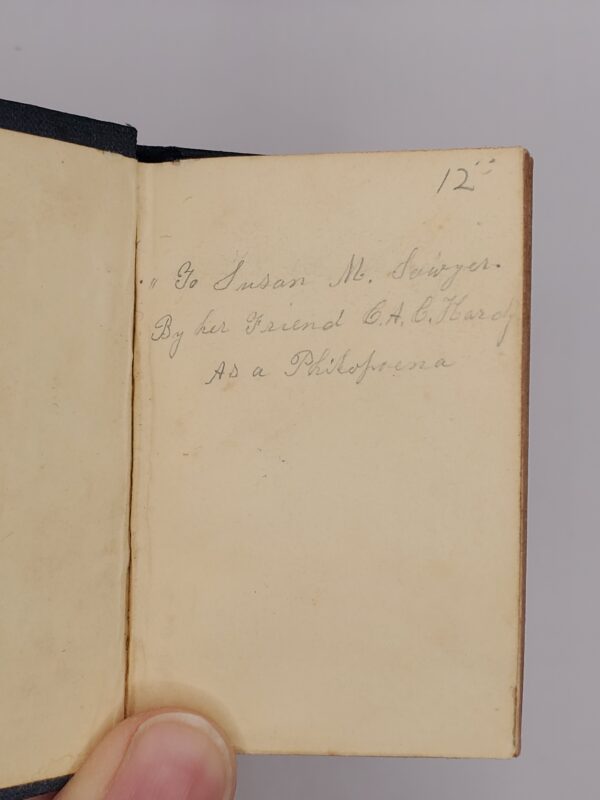 12
" To Susan M. Sawyer.
By her Friend C.A.C. Hardy
As a Philopoena